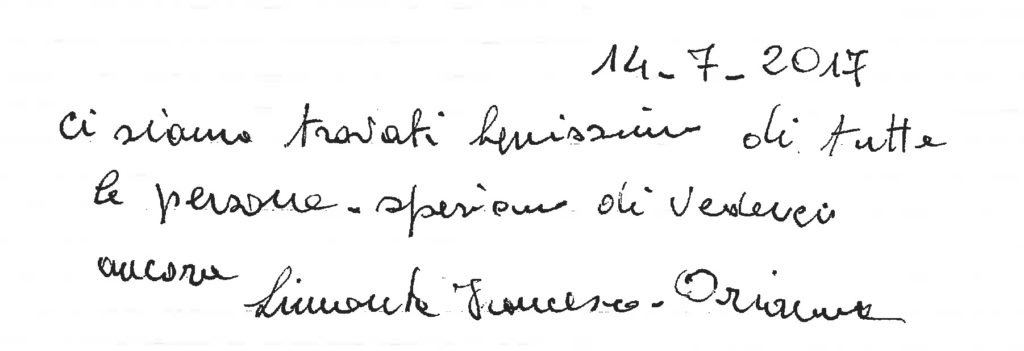 14-7-2017
Ci siamo trovati benissimo di tutte
le persone - speriamo di vederci
ancora
Francesco - Oriana